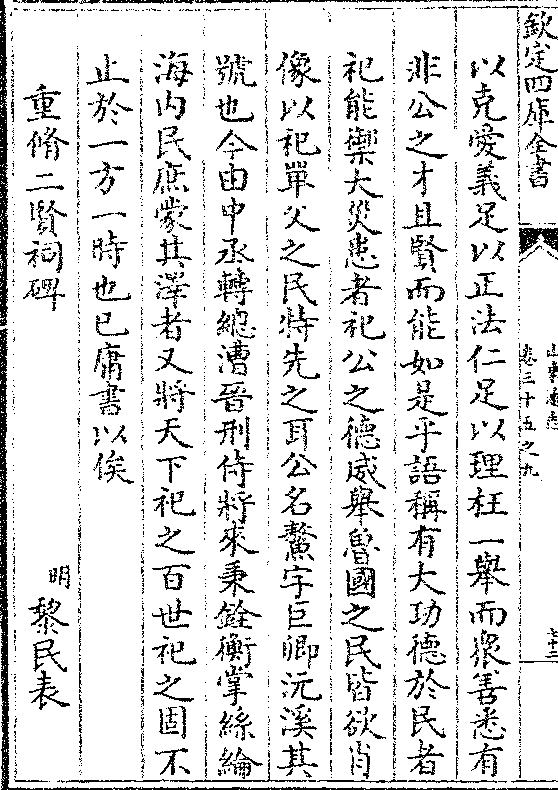 欽定四庫全書
山東通志
卷三十五之九
以克愛義足以正法仁足以理枉一舉而衆善悉有
非公之才且賢而能如是乎語稱有大功德於民者
祀能禦大災患者祀公之德威舉魯國之民皆欲肖
像以祀單父之民特先之耳公名鰲字巨卿沅溪其
號也今由中丞轉總漕晉刑侍將來秉銓衡掌絲綸
海内民庶蒙其澤者又將天下祀之百世祀之固不
止於一方一時也已庸書以俟
重脩二賢祠碑 明 黎民表